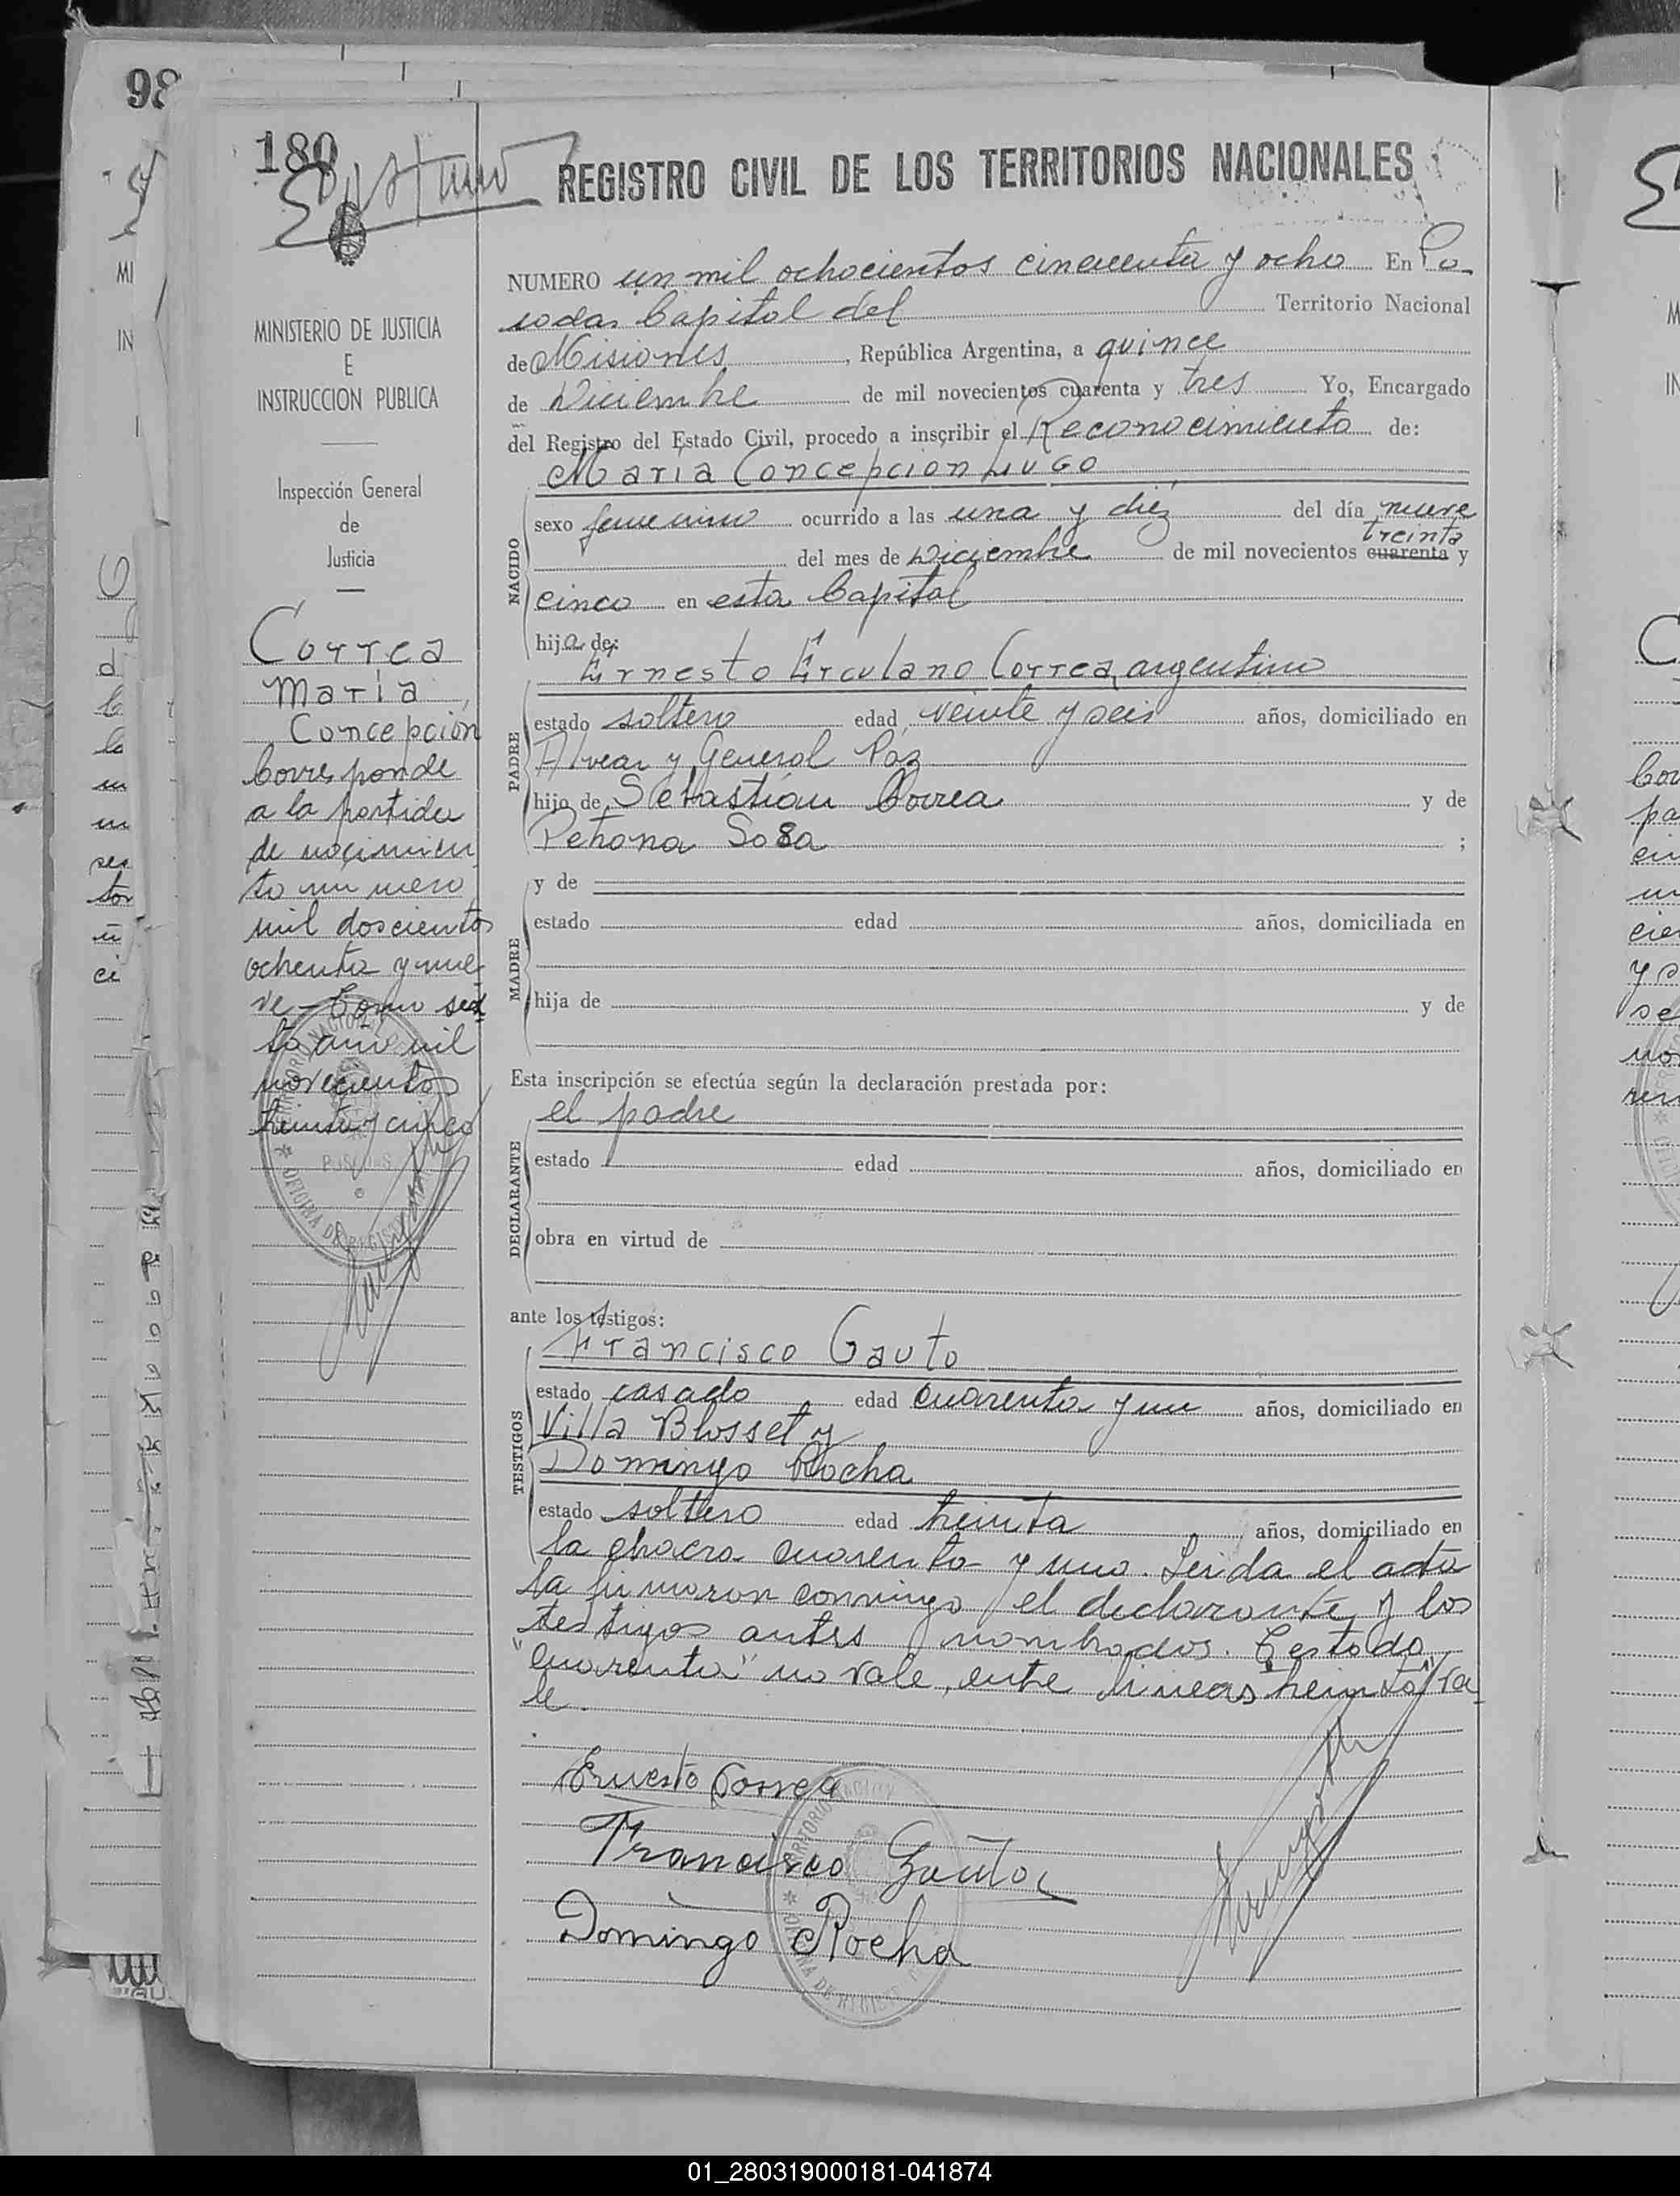 98
180
REGISTRO CIVIL DE LOS TERRITORIOS NACIONALES
MINISTERIO DE JUSTICIA
E
INSTRUCCION PUBLICA
Inspección General
de
Justicia
Correa
Maria
Concepción
Corresponde
a la partida
de nacimien
to numero
mil doscientos
ochenta y nue
ve - Tomo sex
to año mil
novecientos
treinta y cinco
NUMERO un mil ochocientos cincuenta y ocho En Po-
sadas Capital del Territorio Nacional
de Misiones, República Argentina, a quince
de Diciembre de mil novecientos cuarenta y tres Yo, Encargado
del Registro del Estado Civil, procedo a inscribir el Reconocimiento de:
Maria Concepción LUGO
NACIDO
sexo femenino ocurrido a las una y diez del día nueve
treinta
del mes de Diciembre de mil novecientos cuarenta y
cinco en esta Capital
hija de:
Ernesto Erculano Correa, argentino
PADRE
estado soltero edad veinte y seis años, domiciliado en
Alvear y General Paz
hijo de Sebastián Correa y de
Petrona Sosa ;
MADRE
y de
estado edad años, domiciliada en
hija de y de
Esta inscripción se efectúa según la declaración prestada por:
el padre
DECLARANTE
estado edad años, domiciliado en
obra en virtud de
ante los testigos:
Francisco Gauto
TESTIGOS
estado casado edad cuarenta y un años, domiciliado en
Villa Blosset y
Domingo Rocha
estado soltero edad treinta años, domiciliado en
la chacra cuarenta y uno. Leida el acta
la firmaron conmigo el declarante y los
testigos antes nombrados. Testado
"cuarenta" no vale, entre lineas treinta" va
le.
Ernesto Correa
Francisco Gauto
Domingo Rocha
01_280319000181-041874